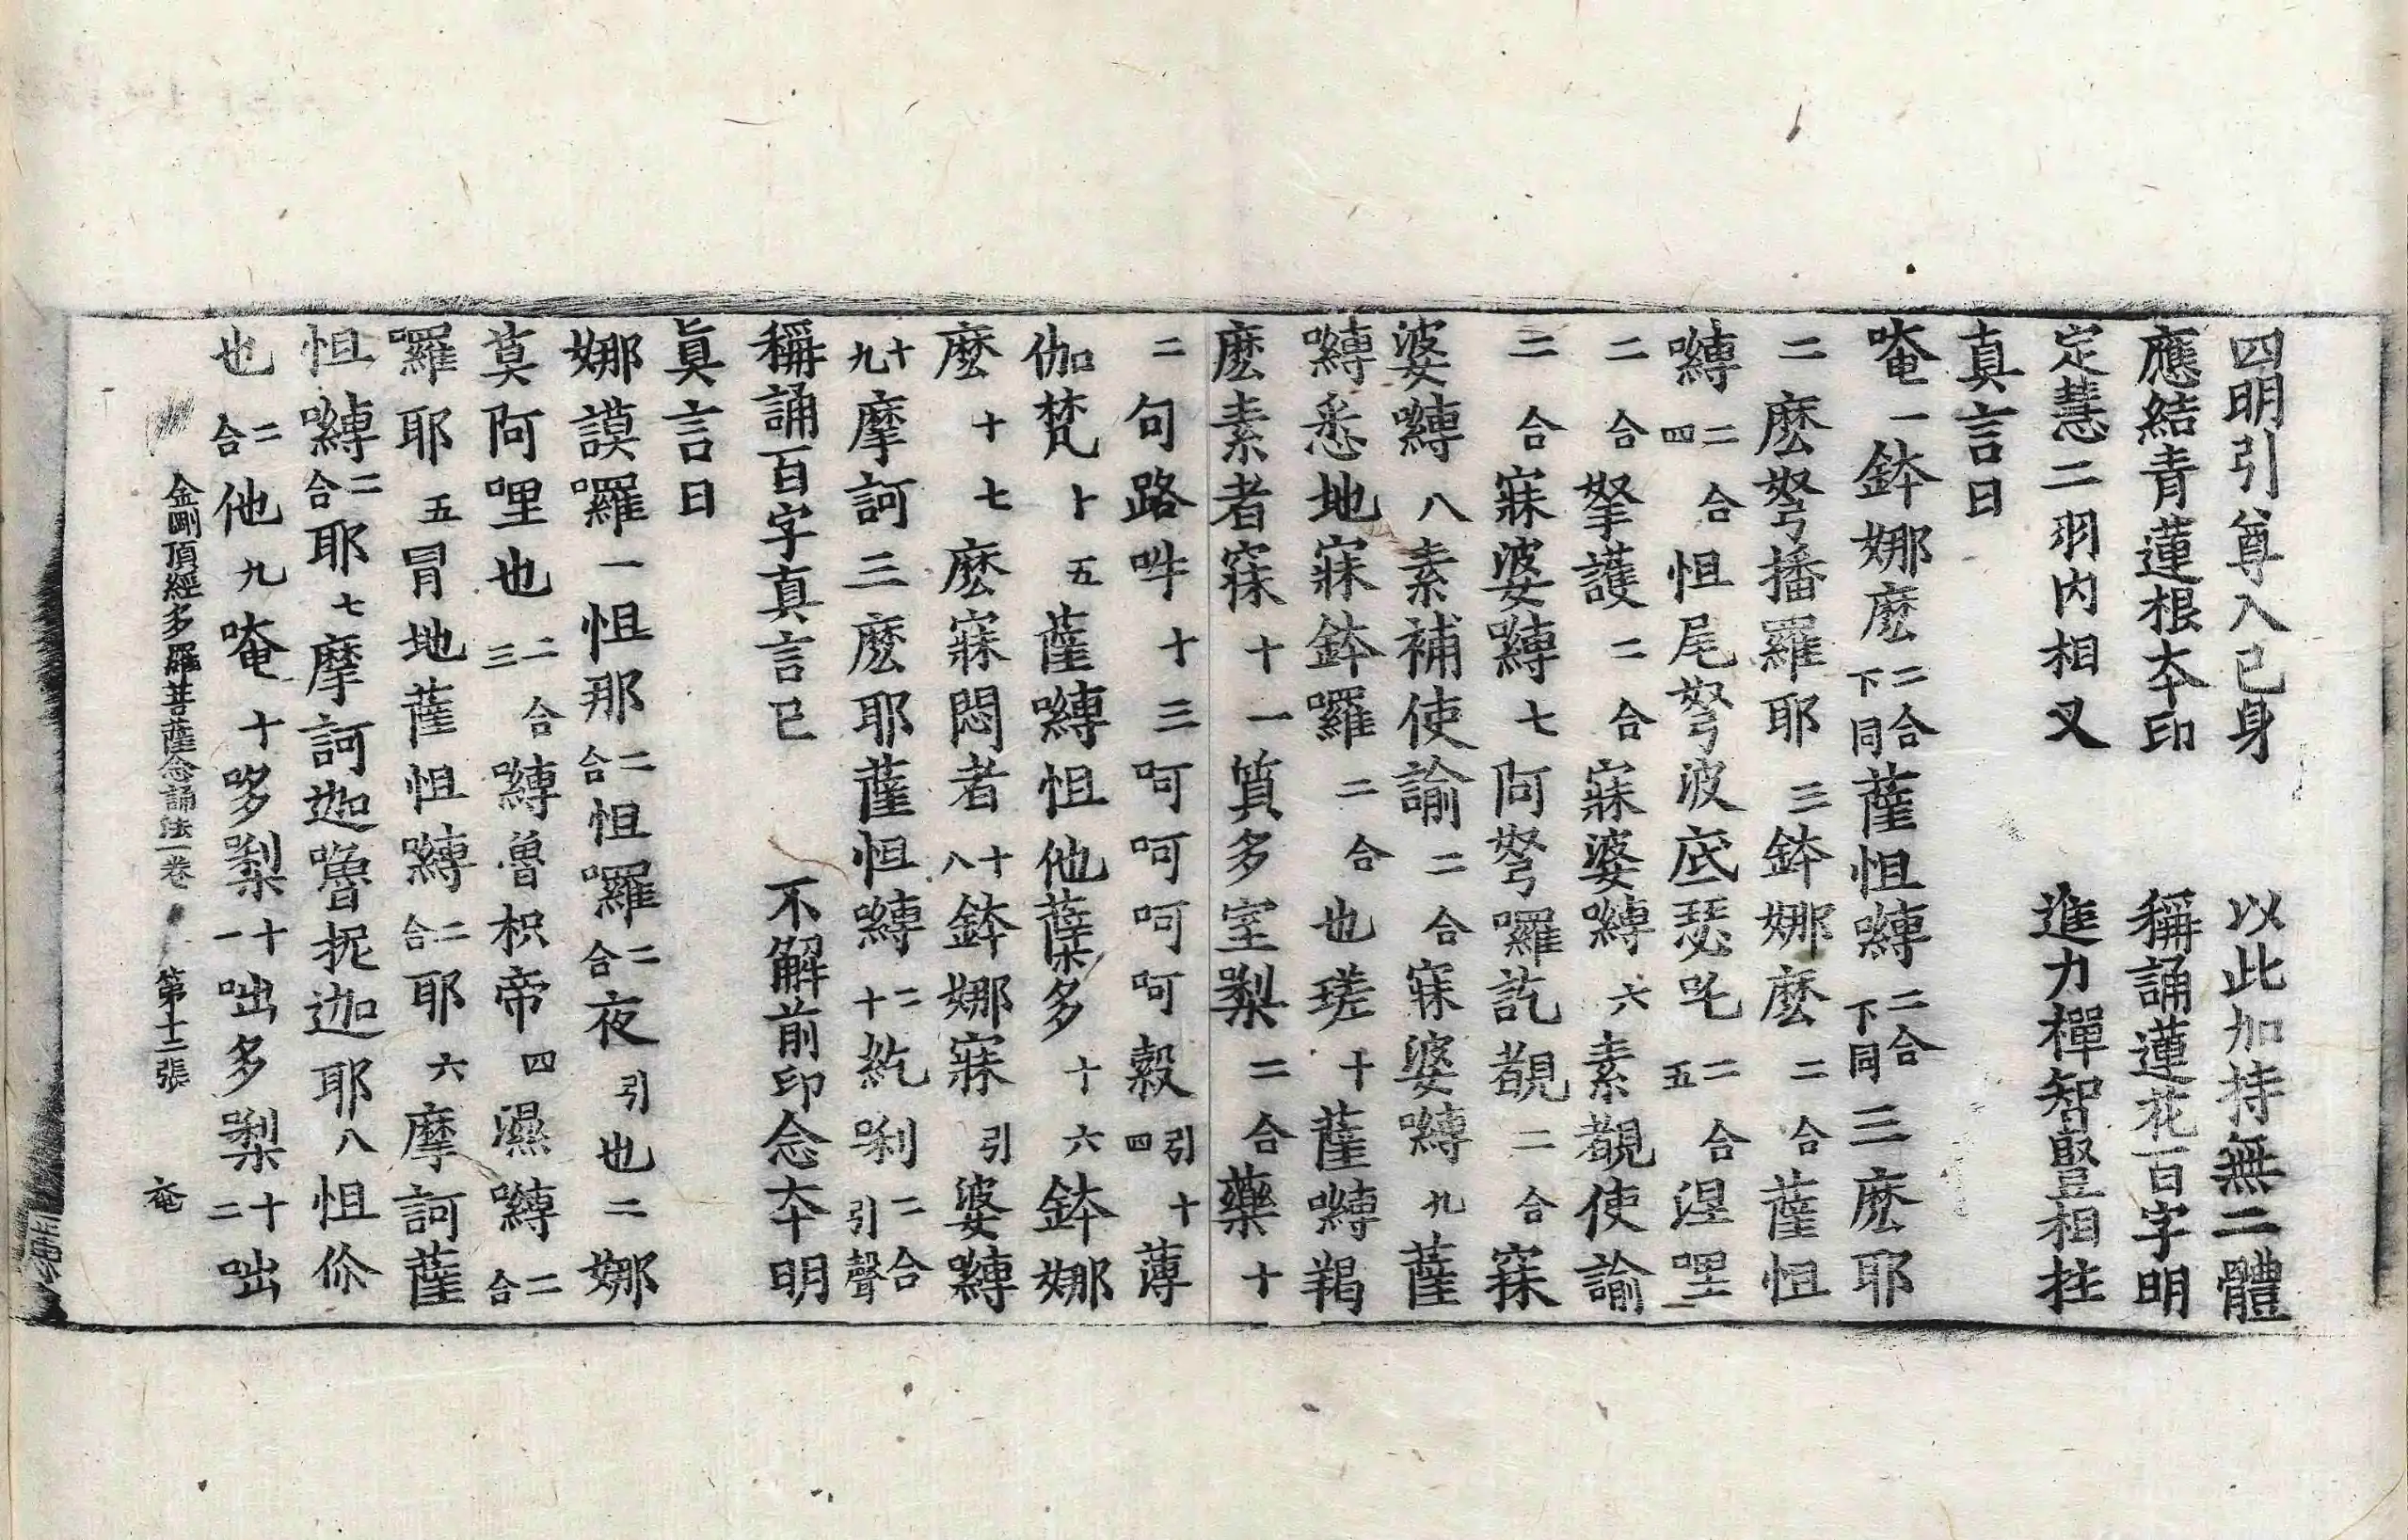 四明引尊入己身 以此加持無二體
應結青蓮根夲印 稱誦蓮花百字明
定慧二羽内相叉 進力樿智豎相拄
真言曰
唵一鉢娜麽二合下同薩怛嚩二合下同三麽耶
二麽弩播羅耶三鉢娜麽二合薩怛
嚩二合四怛尾弩波底瑟吒二合五涅哩
二合拏護二合寐婆嚩六素覩使諭
二合寐婆嚩七阿弩囉訖覩二合寐
婆嚩八素補使諭二合寐婆嚩九薩
嚩悉地寐鉢囉二合也瑳十薩嚩羯
麽素者寐十一質多室㗚二合藥十
二句路吽十三呵呵呵呵㝅引十四薄
伽梵十五薩嚩怛他蘖多十六鉢娜
麽十七麽寐悶者十八鉢娜寐引婆嚩
十九摩訶三麽耶薩怛嚩二十紇唎二合引聲
稱誦百字真言已 不解前印念夲明
眞言曰
娜謨囉一怛那二合怛囉二合夜引也二娜
莫阿哩也二合三嚩嚕枳帝四濕嚩二合
囉耶五冐地薩怛嚩二合耶六摩訶薩
怛嚩二合耶七摩訶迦嚕抳迦耶八怛你
也二合他九唵十哆㗚十一咄多㗚十二咄
金剛頂經多羅菩薩念誦法一卷 第十二張 奄